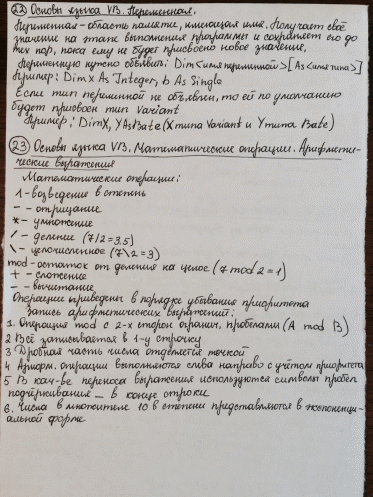 22 Основы языка VB. Переменная.
Переменная - область памяти, имеющая имя. Получает своё
значение на этапе выполнения программы и сохраняет его до
тех пор, пока ему не будет присвоено новое значение.
Переменную нужно объявить: Dim<имя переменной>[As<имя типа>]
Пример: Dim x As Integer, b As Single
Если тип переменной не объявлен, то ей по умолчанию
будет присвоен тип Variant
Пример: Dim X, Y As Bate (X типа Variant и Y типа Bate)
23 Основы языка VB. Математические операции. Арифмети-
ческие выражения
Математические операции:
^ - возведение в степень
- - отрицание
* - умножение
/ - деление (7/2=3.5)
\ - целочисленное (7\2=3)
mod - остаток от деления на целое (7 mod 2=1)
+ - сложение
- - вычитание
Операции приведены в порядке убывания приоритета
Запись арифметических выражений:
1. Операция mod с 2-х сторон огранич. пробелами (A mod B)
2 Всё записывается в 1-у строчку
3 Дробная часть числа отделяется точкой
4 Арифм. операции выполняются слева направо с учётом приоритета
5 В кач-ве переноса выражения используются символы пробел
подчёркивания _ в конце строки
6. Числа в множителе 10 в степени представляются в экспоненци-
альной форме